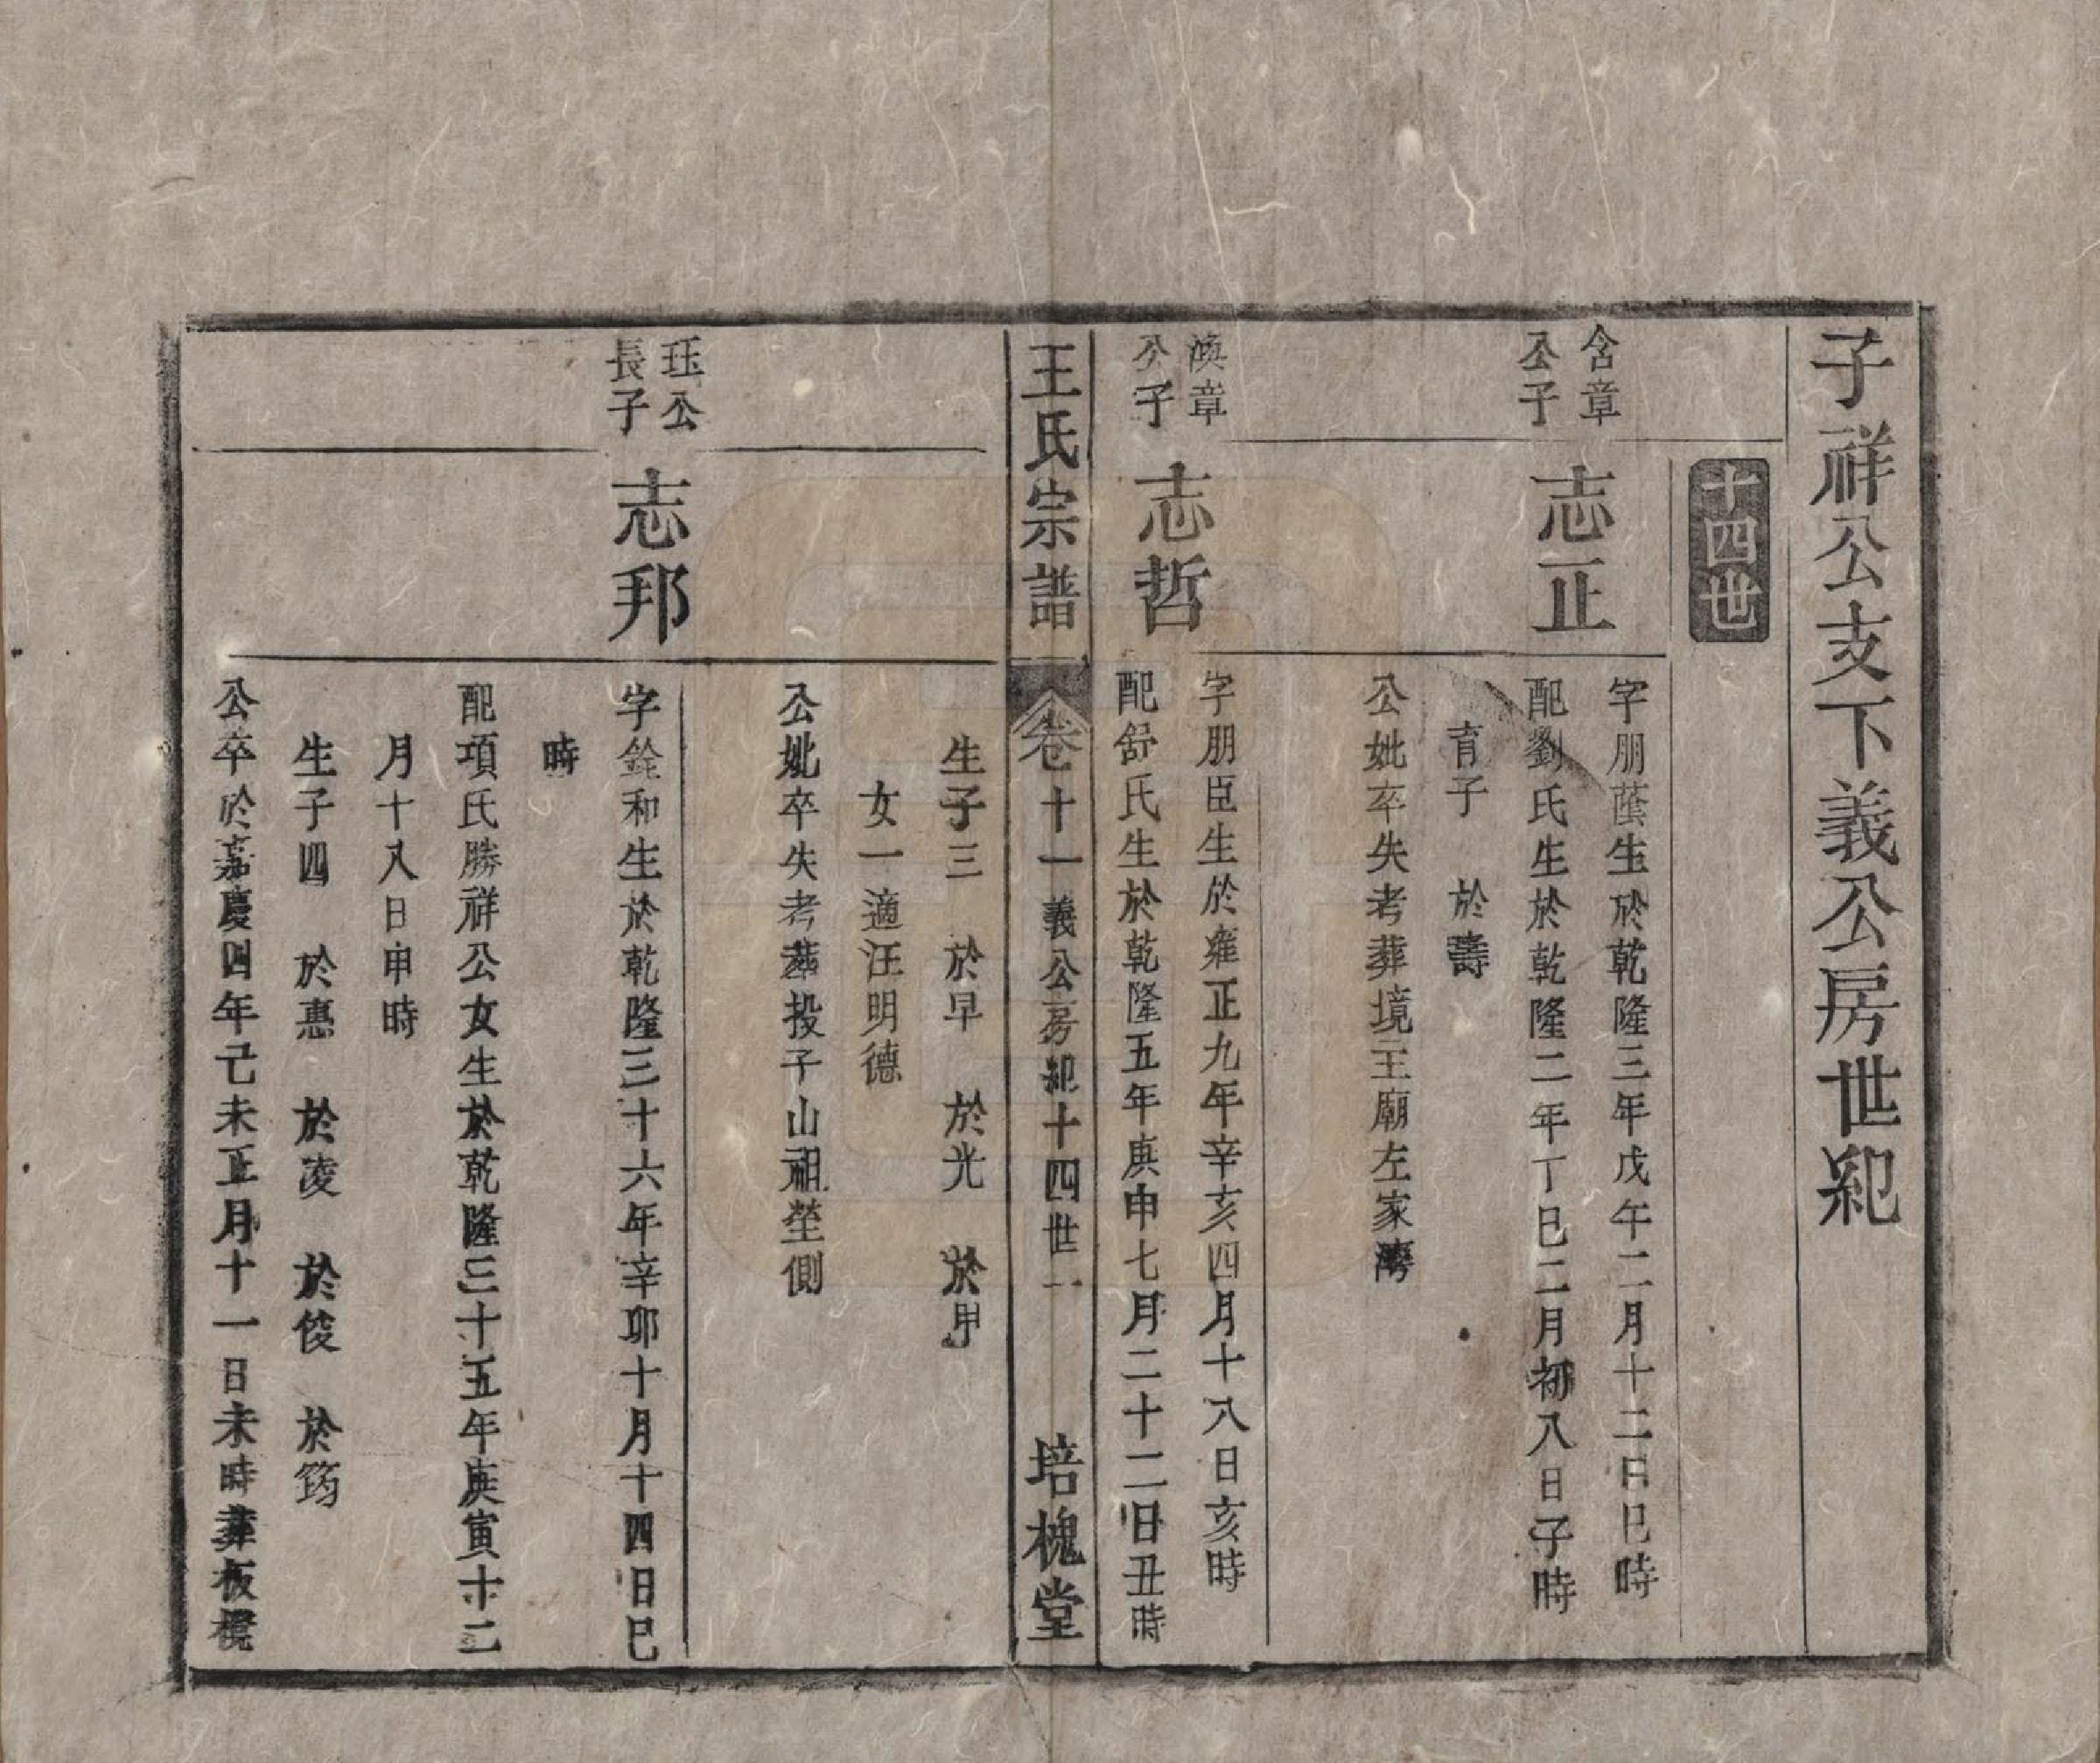 子祥公支下義公房世紀
十四世
含章
公子
志正
字朋蔭生於乾隆三年戊午二月十二日巳時
配劉氏生於乾隆二年丁巳二月初八日子時
育子 於壽
公妣卒失考葬境王廟左家灣
渙章
公子
志哲
字朋臣生於雍正九年辛亥四月十八日亥時
配舒氏生於乾隆五年庚申七月二十二日丑時
王氏宗譜
卷十一義公房紀十四世一
培槐堂
生子三 於早 於光 於甲
女一適汪明德
公妣卒失考葬投子山祖塋側
珏公
長子
志邦
字銓和生於乾隆三十六年辛卯十月十四日巳
時
配項氏勝祥公女生於乾隆三十五年庚寅十二
月十八日申時
生子四 於惠 於凌 於俊 於筠
公卒於嘉慶四年己未正月十一日未時葬板櫈